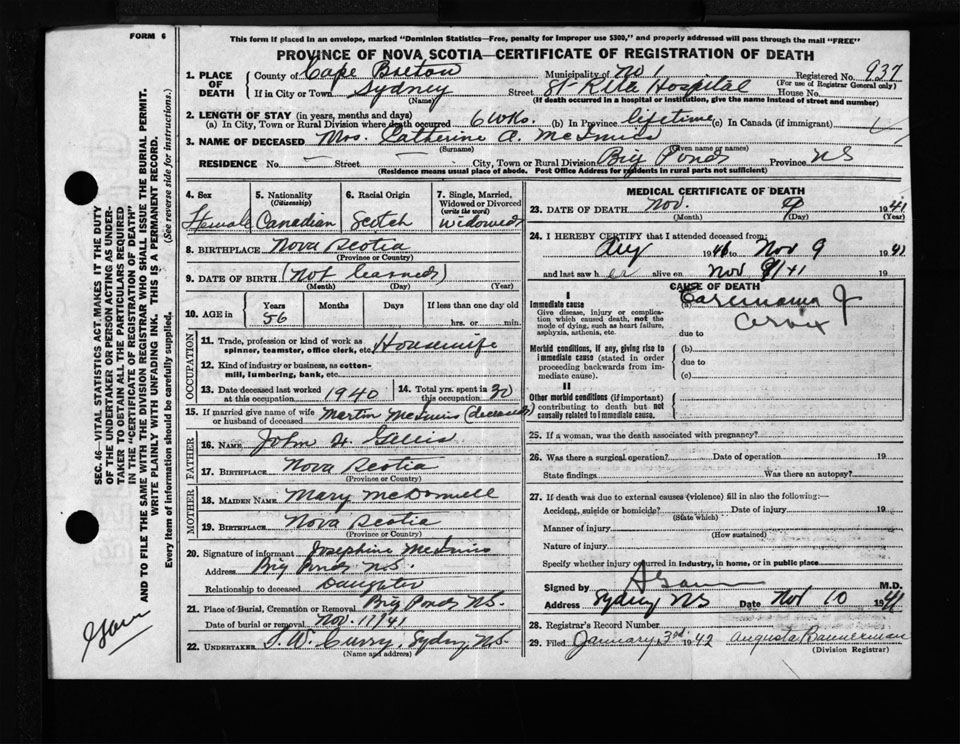 FORM 6
This form if placed in an envelope, marked "Dominion Statistics—Free, penalty for improper use $300," and properly addressed will pass through the mail "FREE"
PROVINCE OF NOVA SCOTIA—CERTIFICATE OF REGISTRATION OF DEATH
1. PLACE OF DEATH
County of Cape Breton Municipality of No 1 Registered No. 937
(For use of Registrar General only)
If in City or Town Sydney Street St Rita Hospital House No.
(Name) (If death occurred in a hospital or institution, give the name instead of street and number)
2. LENGTH OF STAY (in years, months and days)
(a) In City, Town or Rural Division where death occurred 6 wks. (b) In Province lifetime (c) In Canada (if immigrant)
3. NAME OF DECEASED Mrs. Catherine A. McInnis
(Surname) (Given name or names)
RESIDENCE No. — Street — City, Town or Rural Division Big Pond Province NS
(Residence means usual place of abode. Post Office Address for residents in rural parts not sufficient)
4. Sex Female
5. Nationality (Citizenship) Canadian
6. Racial Origin Scotch
7. Single, Married, Widowed or Divorced (write the word) Widowed
8. BIRTHPLACE Nova Scotia
(Province or Country)
9. DATE OF BIRTH (Not learned)
(Month) (Day) (Year)
10. AGE in Years 56 Months Days If less than one day
hrs. or min.
OCCUPATION
11. Trade, profession or kind of work as spinner, teamster, office clerk, etc. Housewife
12. Kind of industry or business, as cotton-mill, lumbering, bank, etc.
13. Date deceased last worked at this occupation 1940
14. Total yrs. spent in this occupation 30
15. If married give name of wife or husband of deceased Martin McInnis (deceased)
FATHER
16. NAME John H. Gillis
17. BIRTHPLACE Nova Scotia
(Province or Country)
MOTHER
18. MAIDEN NAME Mary McDonnell
19. BIRTHPLACE Nova Scotia
(Province or Country)
20. Signature of informant Josephine McInnis
Address Big Pond N.S.
Relationship to deceased Daughter
21. Place of Burial, Cremation or Removal Big Pond N.S.
Date of burial or removal Nov. 11/41
22. UNDERTAKER T.W. Curry, Sydney N.S.
(Name and address)
MEDICAL CERTIFICATE OF DEATH
23. DATE OF DEATH Nov. 9 1941
(Month) (Day) (Year)
24. I HEREBY CERTIFY that I attended deceased from:
Aug 1941 to Nov 9 1941
and last saw her alive on Nov 9/41 19
CAUSE OF DEATH
I
Immediate cause
Give disease, injury or complication which caused death, not the mode of dying, such as heart failure, asphyxia, asthenia, etc.
(a) Carcinoma of Cervix
due to
Morbid conditions, if any, giving rise to immediate cause (stated in order proceeding backwards from immediate cause).
(b)
due to
(c)
II
Other morbid conditions (if important) contributing to death but not causally related to immediate cause.
25. If a woman, was the death associated with pregnancy?
26. Was there a surgical operation? Date of operation 19
State findings Was there an autopsy?
27. If death was due to external causes (violence) fill in also the following:—
Accident, suicide or homicide? Date of injury 19
(State which)
Manner of injury
(How sustained)
Nature of injury
Specify whether injury occurred in industry, in home, or in public place
Signed by M.D.
Address Sydney NS Date Nov 10 1941
28. Registrar's Record Number
29. Filed January 3rd 1942 Augusta Bannerman
(Division Registrar)
SEC. 46—VITAL STATISTICS ACT, MAKES IT THE DUTY
OF THE UNDERTAKER OR PERSON ACTING AS UNDER-
TAKER TO OBTAIN ALL THE PARTICULARS REQUIRED
IN THE "CERTIFICATE OF REGISTRATION OF DEATH"
AND TO FILE THE SAME WITH THE DIVISION REGISTRAR WHO SHALL ISSUE THE BURIAL PERMIT.
WRITE PLAINLY WITH UNFADING INK. THIS IS A PERMANENT RECORD.
Every item of Information should be carefully supplied. (See reverse side for instructions.)